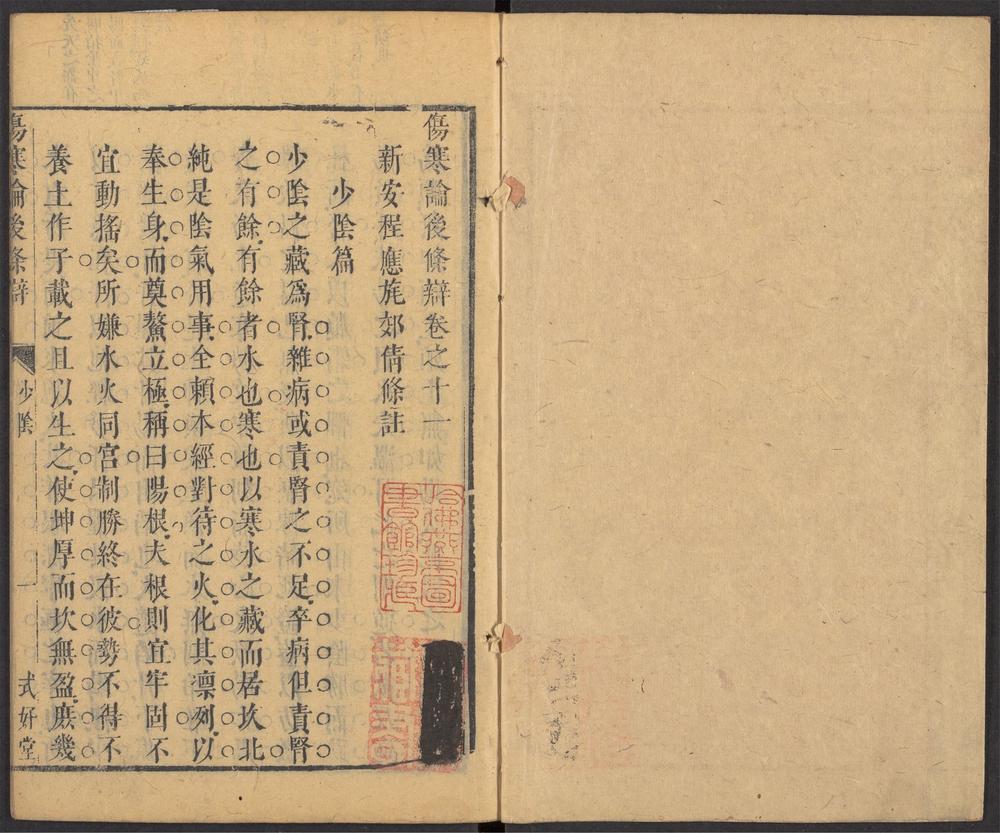 傷寒論後條辯卷之十一
新安程應旄郊倩條註
少陰篇
少陰之藏爲腎雜病或責腎之不足卒病但責腎
之有餘有餘者水也寒也以寒水之藏而居坎北
純是陰氣用事全賴本經對待之火化其凛列以
奉生身而奠鰲立極稱曰陽根夫根則宜牢固不
宜動搖矣所嫌水火同宮制勝終在彼勢不得不
養土作子載之且以生之使坤厚而坎無盈庶幾
傷寒論後條辯
少陰
一
式好堂
哈佛燕京圖
書館珍藏